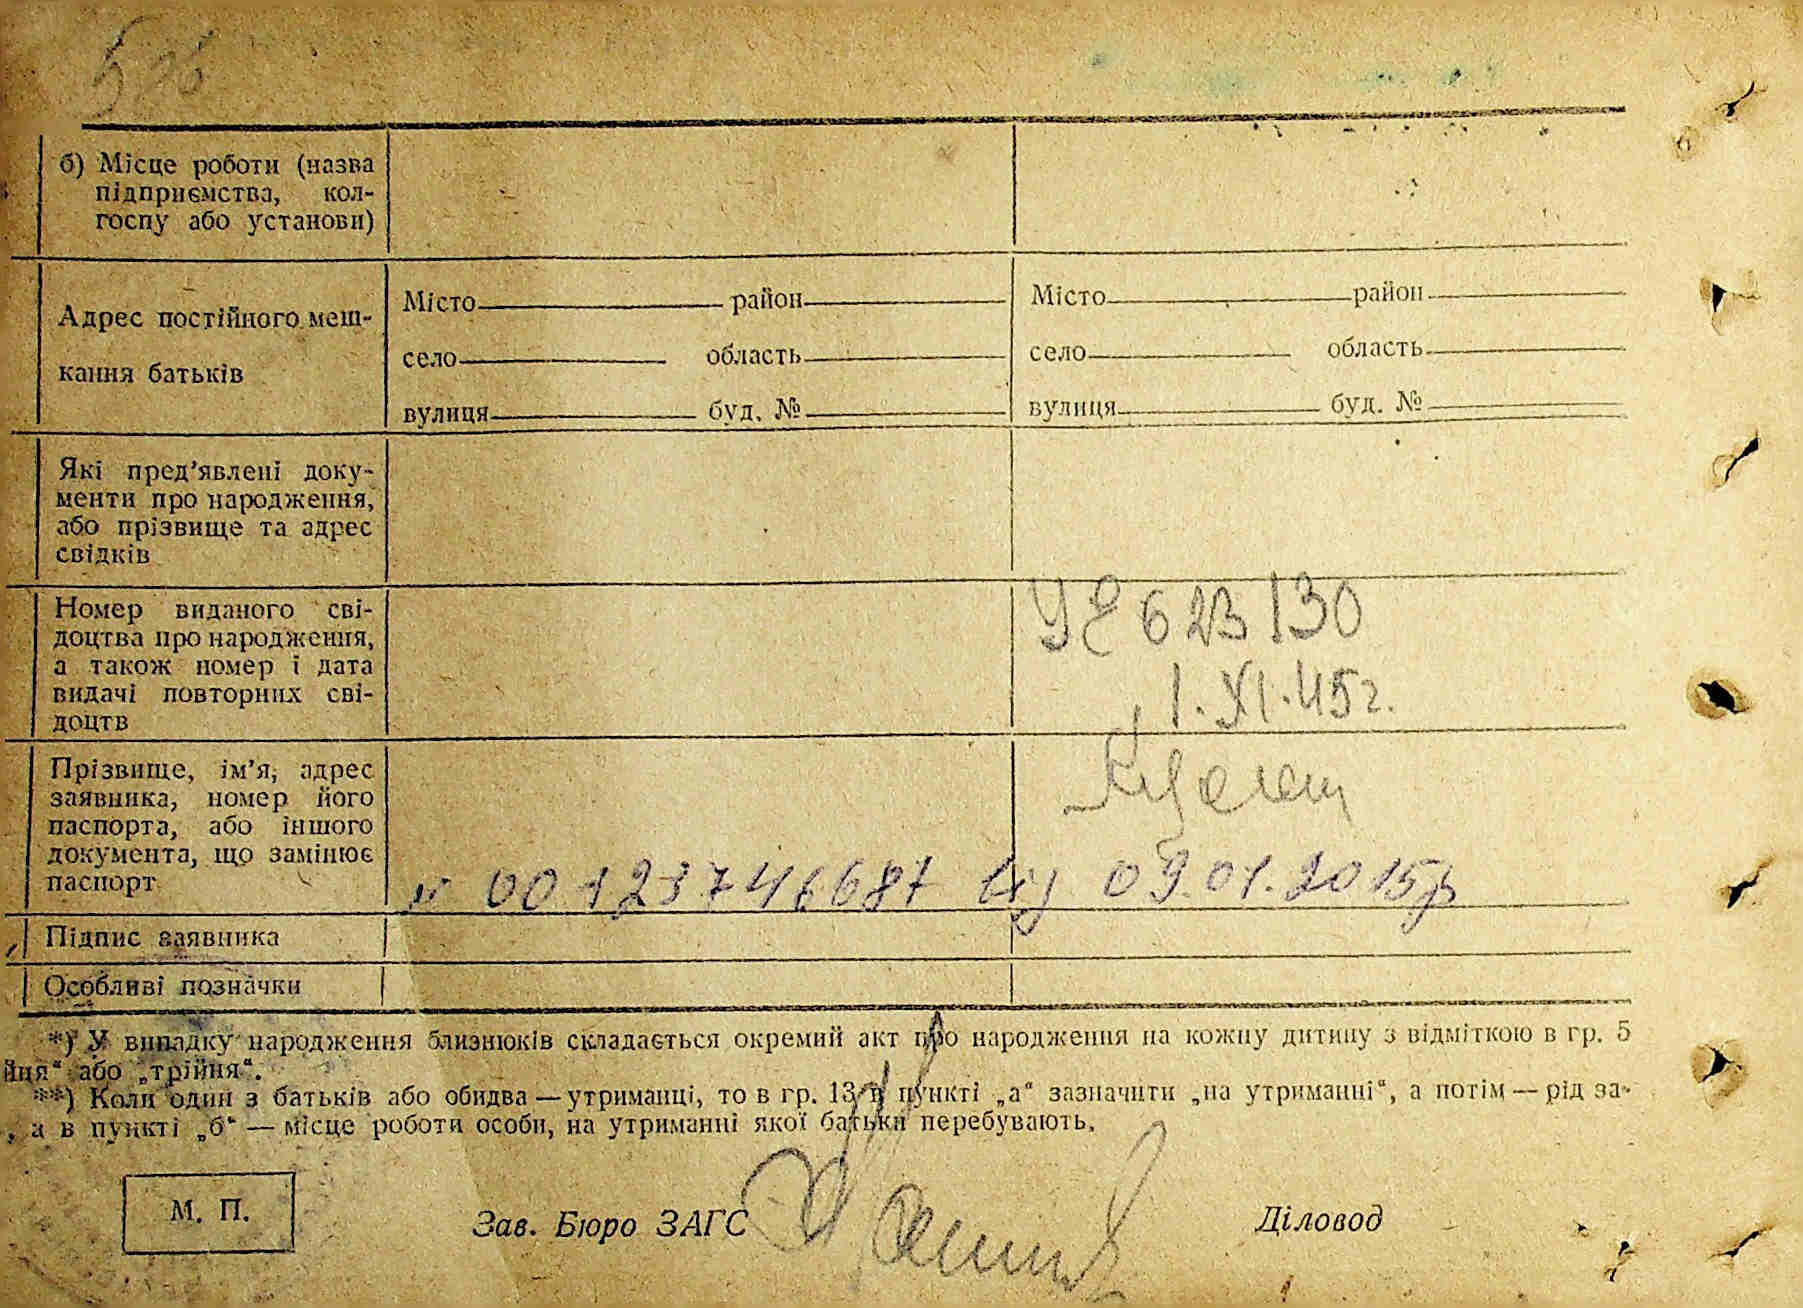 б) Місце роботи (назва
підприємства, кол-
госпу або установи)
Адрес постійного меш-
кання батьків
Місто район
село область
вулиця буд. №
Місто район
село область
вулиця буд. №
Які пред’явлені доку-
менти про народження,
або прізвище та адрес
свідків
Номер виданого сві-
доцтва про народження,
а також номер і дата
видачі повторних сві-
доцтв
УЕ 623130
1.XI.45г.
Прізвище, ім’я, адрес
заявника, номер його
паспорта, або іншого
документа, що замінює
паспорт
№ 00123746687 від 09.01.2015р
Підпис заявника
Особливі позначки
*) У випадку народження близнюків складається окремий акт про народження на кожну дитину з відміткою в гр. 5
йня“ або „трійня“.
**) Коли один з батьків або обидва — утриманці, то в гр. 13 в пункті „а“ зазначити „на утриманні“, а потім — рід за-
, а в пункті „б“ — місце роботи особи, на утриманні якої батьки перебувають.
М. П.
Зав. Бюро ЗАГС
Діловод